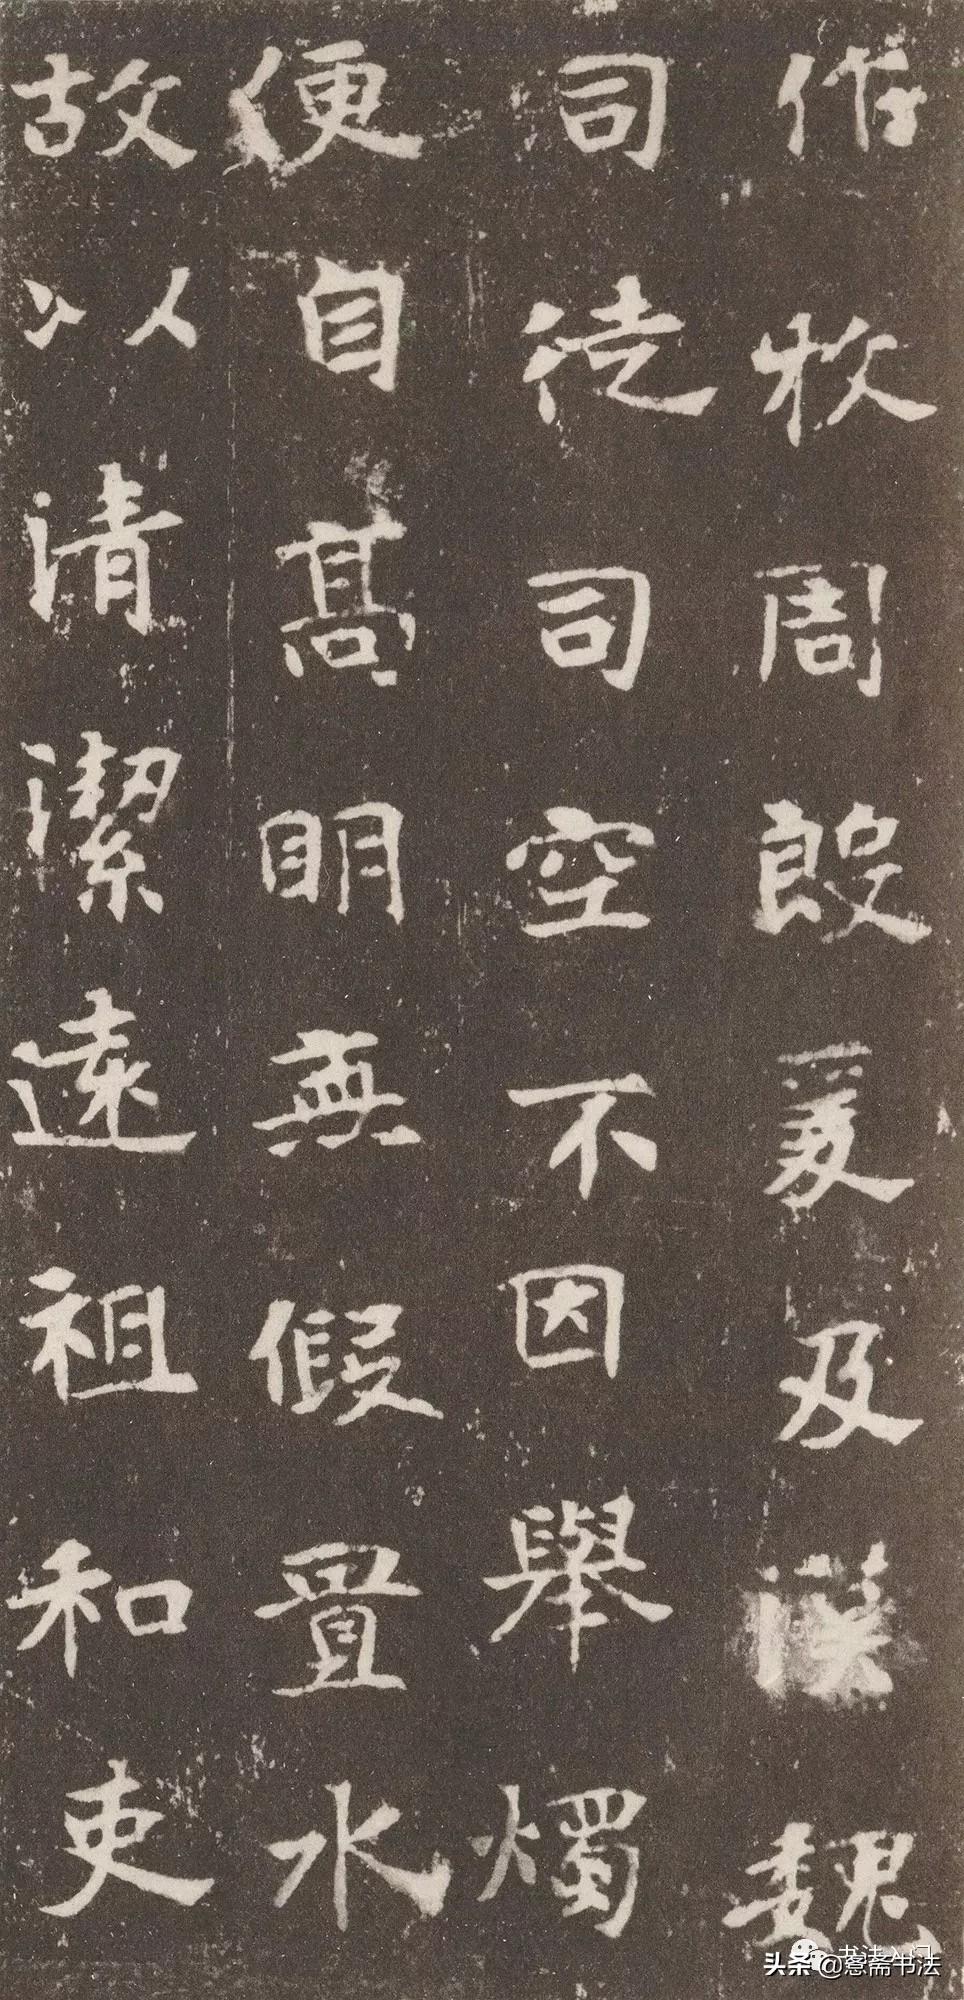 作牧周殷爰及漢魏
司徒司空不因舉燭
便自高明無假置水
故以清潔遠祖和吏
书法入门
头条@愙斋书法